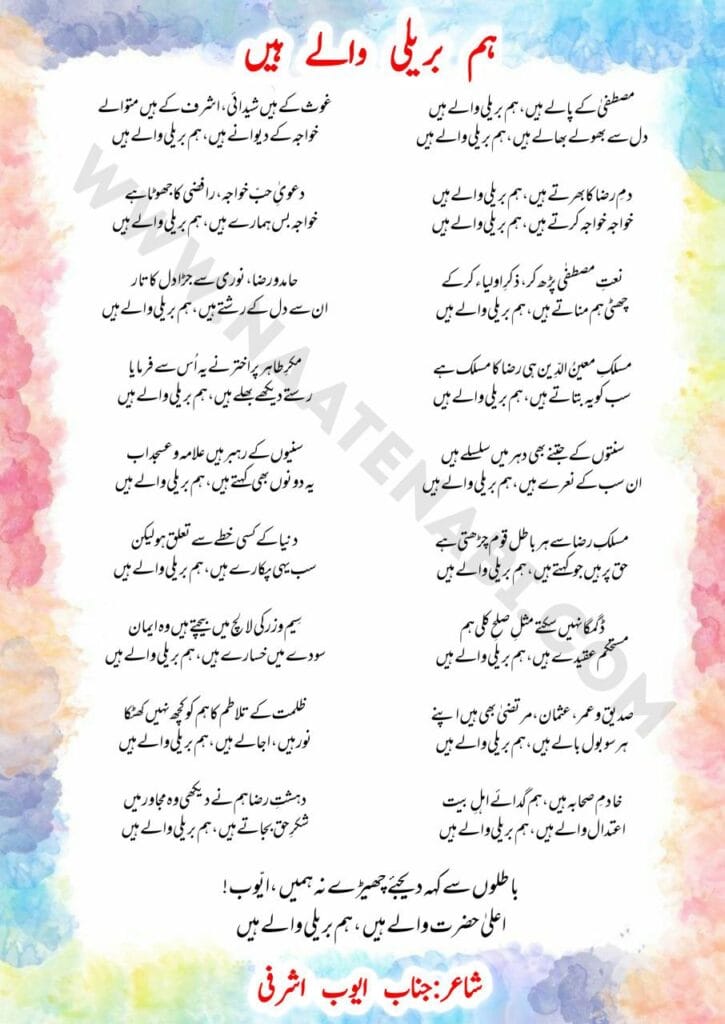 ہم بریلی والے ہیں
مصطفیٰ کے پالے ہیں، ہم بریلی والے ہیں
دل سے بھولے بھالے ہیں، ہم بریلی والے ہیں
غوث کے ہیں شیدائی، اشرف کے ہیں متوالے
خواجہ کے دیوانے ہیں، ہم بریلی والے ہیں
دم رضا کا بھرتے ہیں، ہم بریلی والے ہیں
خواجہ خواجہ کرتے ہیں، ہم بریلی والے ہیں
دعویٰ حبِّ خواجہ، رافضی کا جھوٹا ہے
خواجہ بس ہمارے ہیں، ہم بریلی والے ہیں
نعتِ مصطفٰی پڑھ کر، ذکرِ اولیاء کر کے
چھٹی ہم مناتے ہیں، ہم بریلی والے ہیں
حامد و رضا، نوری سے جڑا دل کا تار
ان سے دل کے رشتے ہیں، ہم بریلی والے ہیں
مسلکِ معینُ الدّین ہی رضا کا مسلک ہے
سب کو یہ بتاتے ہیں، ہم بریلی والے ہیں
مکرِ طاہر پر اختر نے یہ اُس سے فرمایا
رستے دیکھے بھلے ہیں، ہم بریلی والے ہیں
سنتوں کے جتنے بھی دہر میں سلسلے ہیں
ان سب کے نعرے ہیں، ہم بریلی والے ہیں
سنیوں کے رہبر ہیں علامہ و عسجد اب
یہ دونوں بھی کہتے ہیں، ہم بریلی والے ہیں
مسلکِ رضا سے ہر باطل قوم چڑھتی ہے
حق پر ہیں جو کہتے ہیں، ہم بریلی والے ہیں
دنیا کے کسی خطے سے تعلق ہو لیکن
سب یہی پکارے ہیں، ہم بریلی والے ہیں
ڈگمگا نہیں سکتے مثلِ صلحِ کلی ہم
مستحکم عقیدے ہیں، ہم بریلی والے ہیں
سیم و زر کی لالچ میں بیچتے ہیں وہ ایمان
سودے میں خسارے ہیں، ہم بریلی والے ہیں
صدیق و عمر، عثمان، مرتضیٰ بھی ہیں اپنے
ہر سو بول بالے ہیں، ہم بریلی والے ہیں
ظلمت کے تلاطم کا ہم کو کچھ نہیں کھٹکا
نور ہیں، اجالے ہیں، ہم بریلی والے ہیں
خادمِ صحابہ ہیں، ہم گدائے اہلِ بیت
اعتدال والے ہیں، ہم بریلی والے ہیں
دہشتِ رضا ہم نے دیکھی وہ مجاور میں
شکرِ حق بجاتے ہیں، ہم بریلی والے ہیں
باطلوں سے کہہ دیجئے چھیڑے نہ ہمیں، ایّوب!
اعلیٰ حضرت والے ہیں، ہم بریلی والے ہیں
شاعر: جناب ایوب اشرفی
WWW.NAATENABI.COM